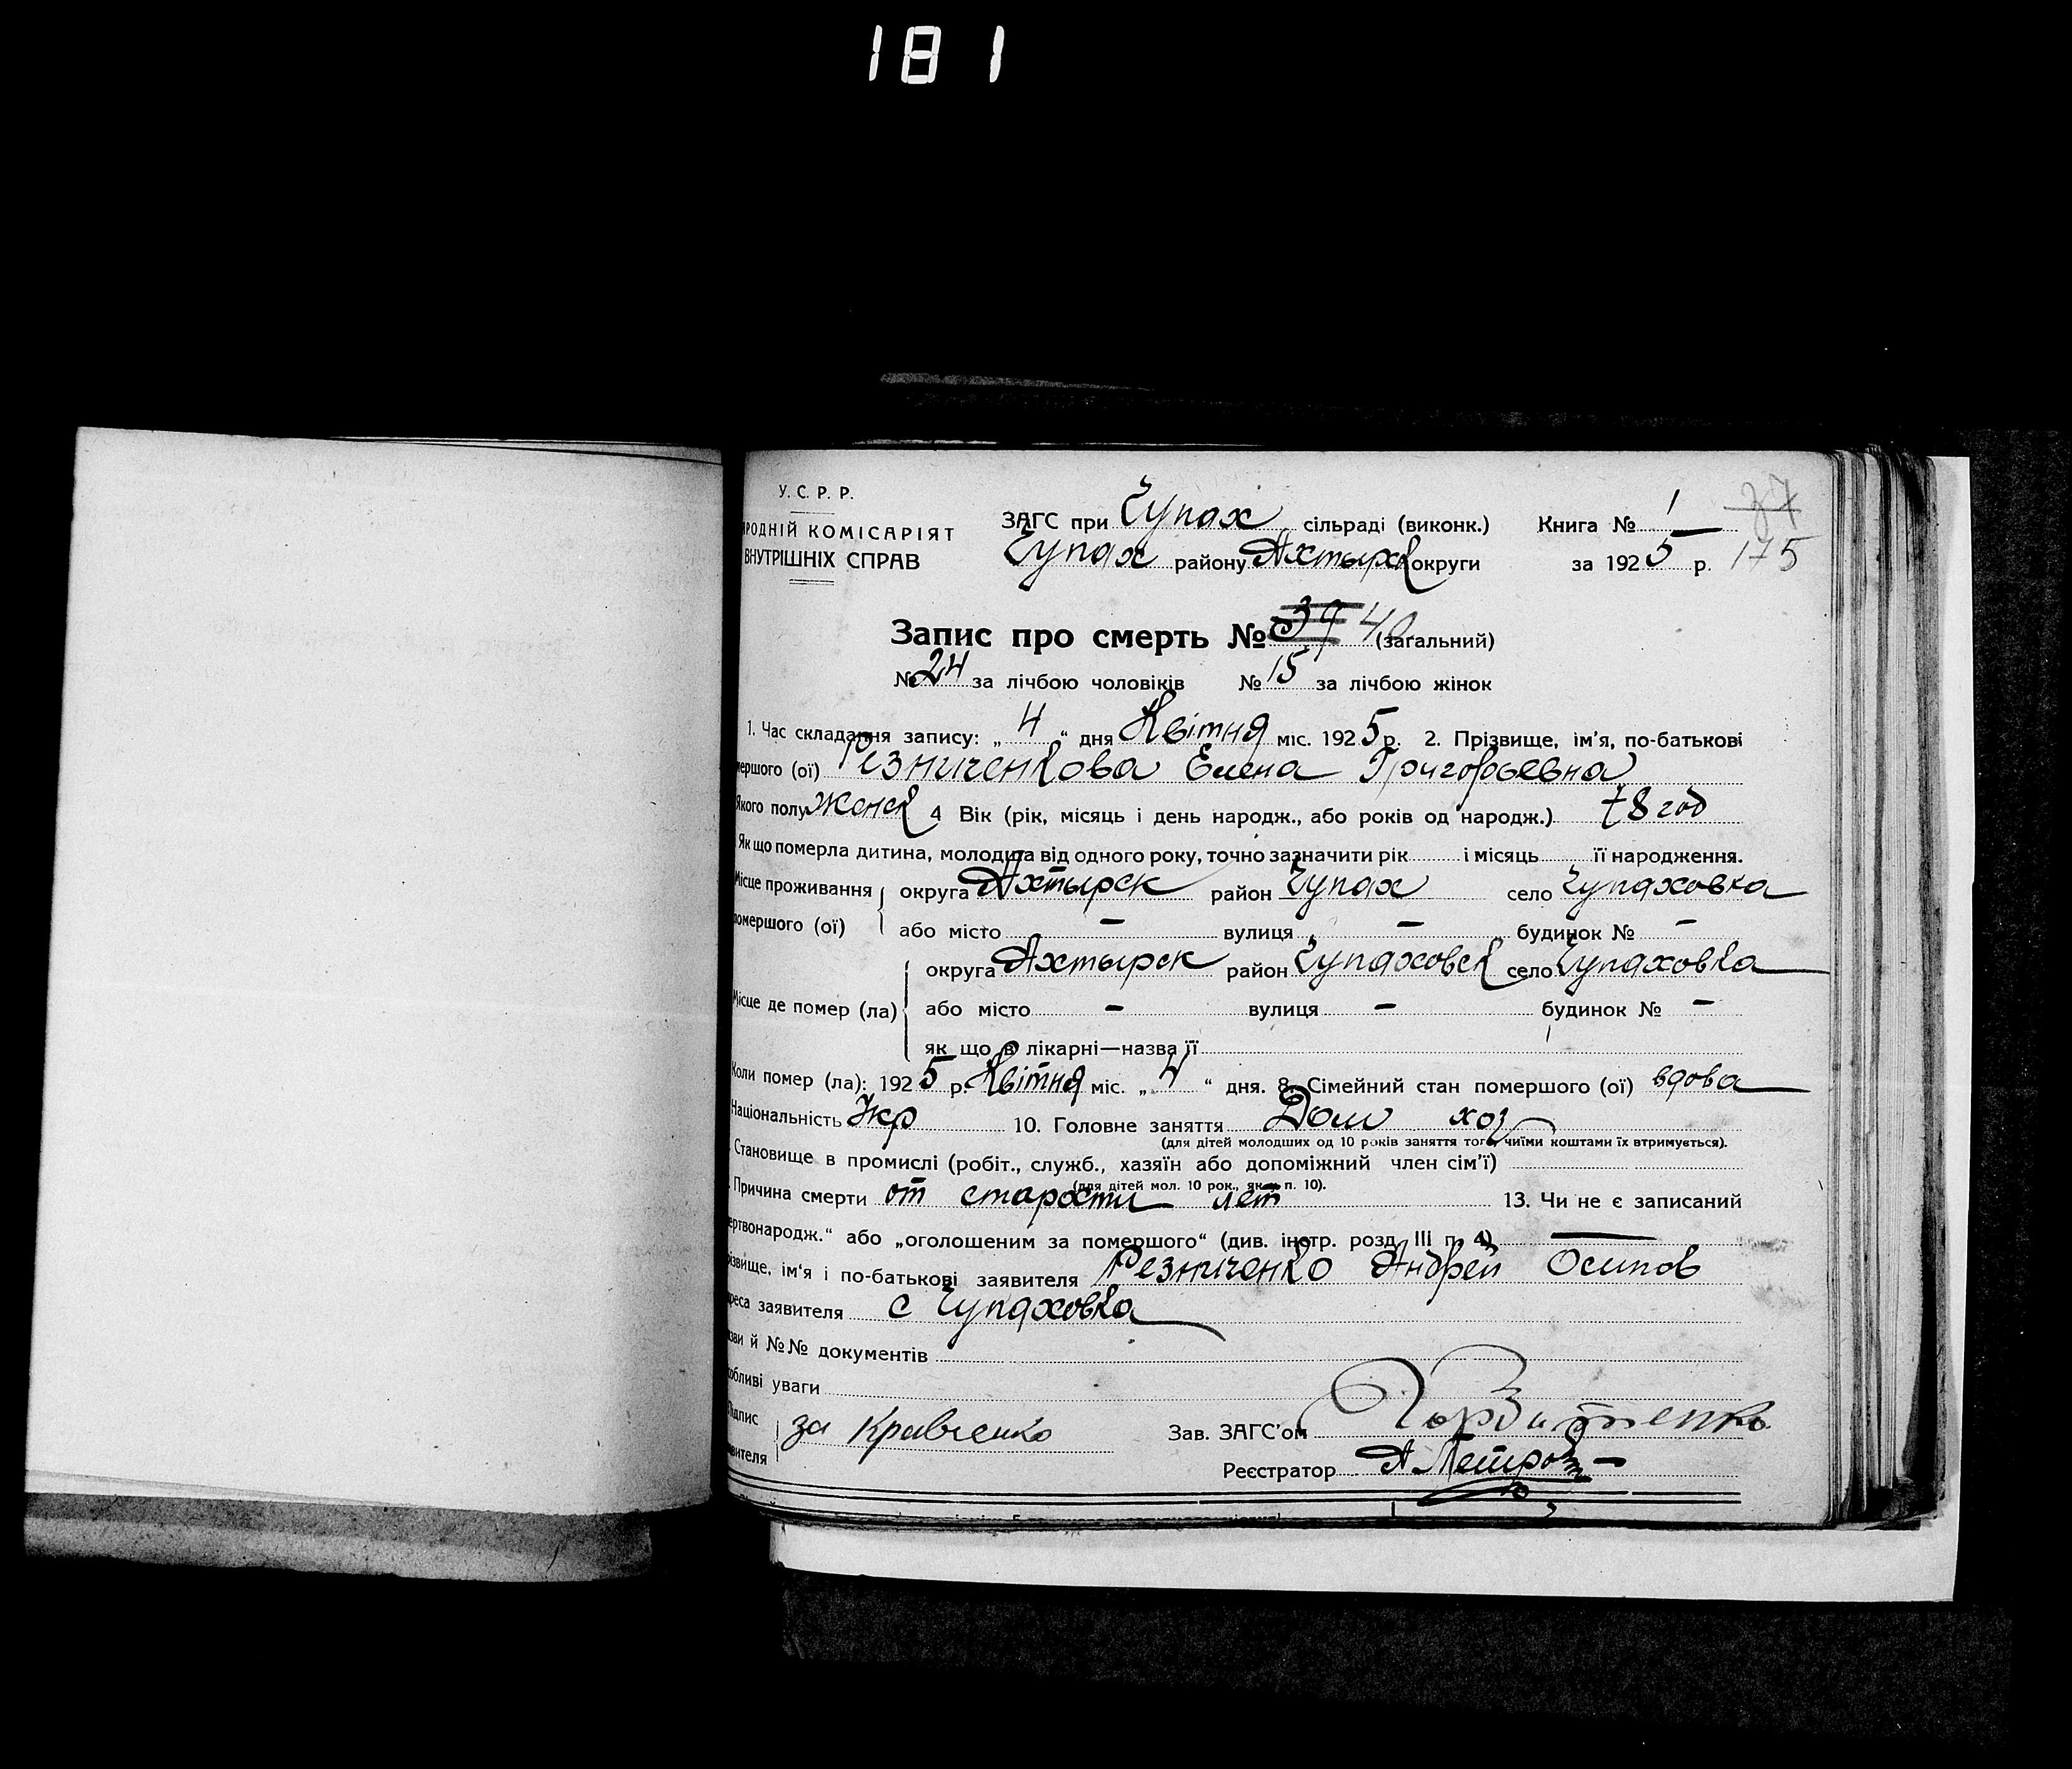 181
У. С. Р. Р.
РОДНІЙ КОМІСАРІЯТ
ВНУТРІШНІХ СПРАВ
ЗАГС при Чупах сільраді (виконк.) Книга № 1 37
Чупах району Ахтырск округи за 1925 р. 175
Запис про смерть № 39 40 (загальний)
№ 24 за лічбою чоловіків № 15 за лічбою жінок
1. Час складання запису: „4“ дня Квітня міс. 1925 р. 2. Прізвище, ім'я, по-батькові
мершого (ої) Резниченкова Елена Григорьевна
Якого полу женск 4 Вік (рік, місяць і день народж., або років од народж.) 78 год
Як що померла дитина, молодша від одного року, точно зазначити рік і місяць її народження.
Місце проживання округа Ахтырск район Чупах село Чупаховка
помершого (ої) або місто — вулиця — будинок № —
округа Ахтырск район Чупаховск село Чупаховка
Місце де помер (ла) або місто — вулиця — будинок № —
як що в лікарні—назва її
Коли помер (ла): 1925 р. Квітня міс. „4“ дня. 8. Сімейний стан помершого (ої) вдова
Національність Укр 10. Головне заняття Дом хоз
(для дітей молодших од 10 років заняття того, чиїми коштами їх втримується).
Становище в промислі (робіт., служб., хазяїн або допоміжний член сім'ї)
(для дітей мол. 10 рок., як в п. 10).
Причина смерти от старости лет 13. Чи не є записаний
ертвонародж.“ або „оголошеним за помершого“ (див. інстр. розд. III п. 4) —
ізвище, ім'я і по-батькові заявителя Резниченко Андрей Осипов
реса заявителя с Чупаховка
зви й №№ документів
обливі уваги
Підпис
явителя за Кравченко Зав. ЗАГС'ом
Реєстратор А Петро